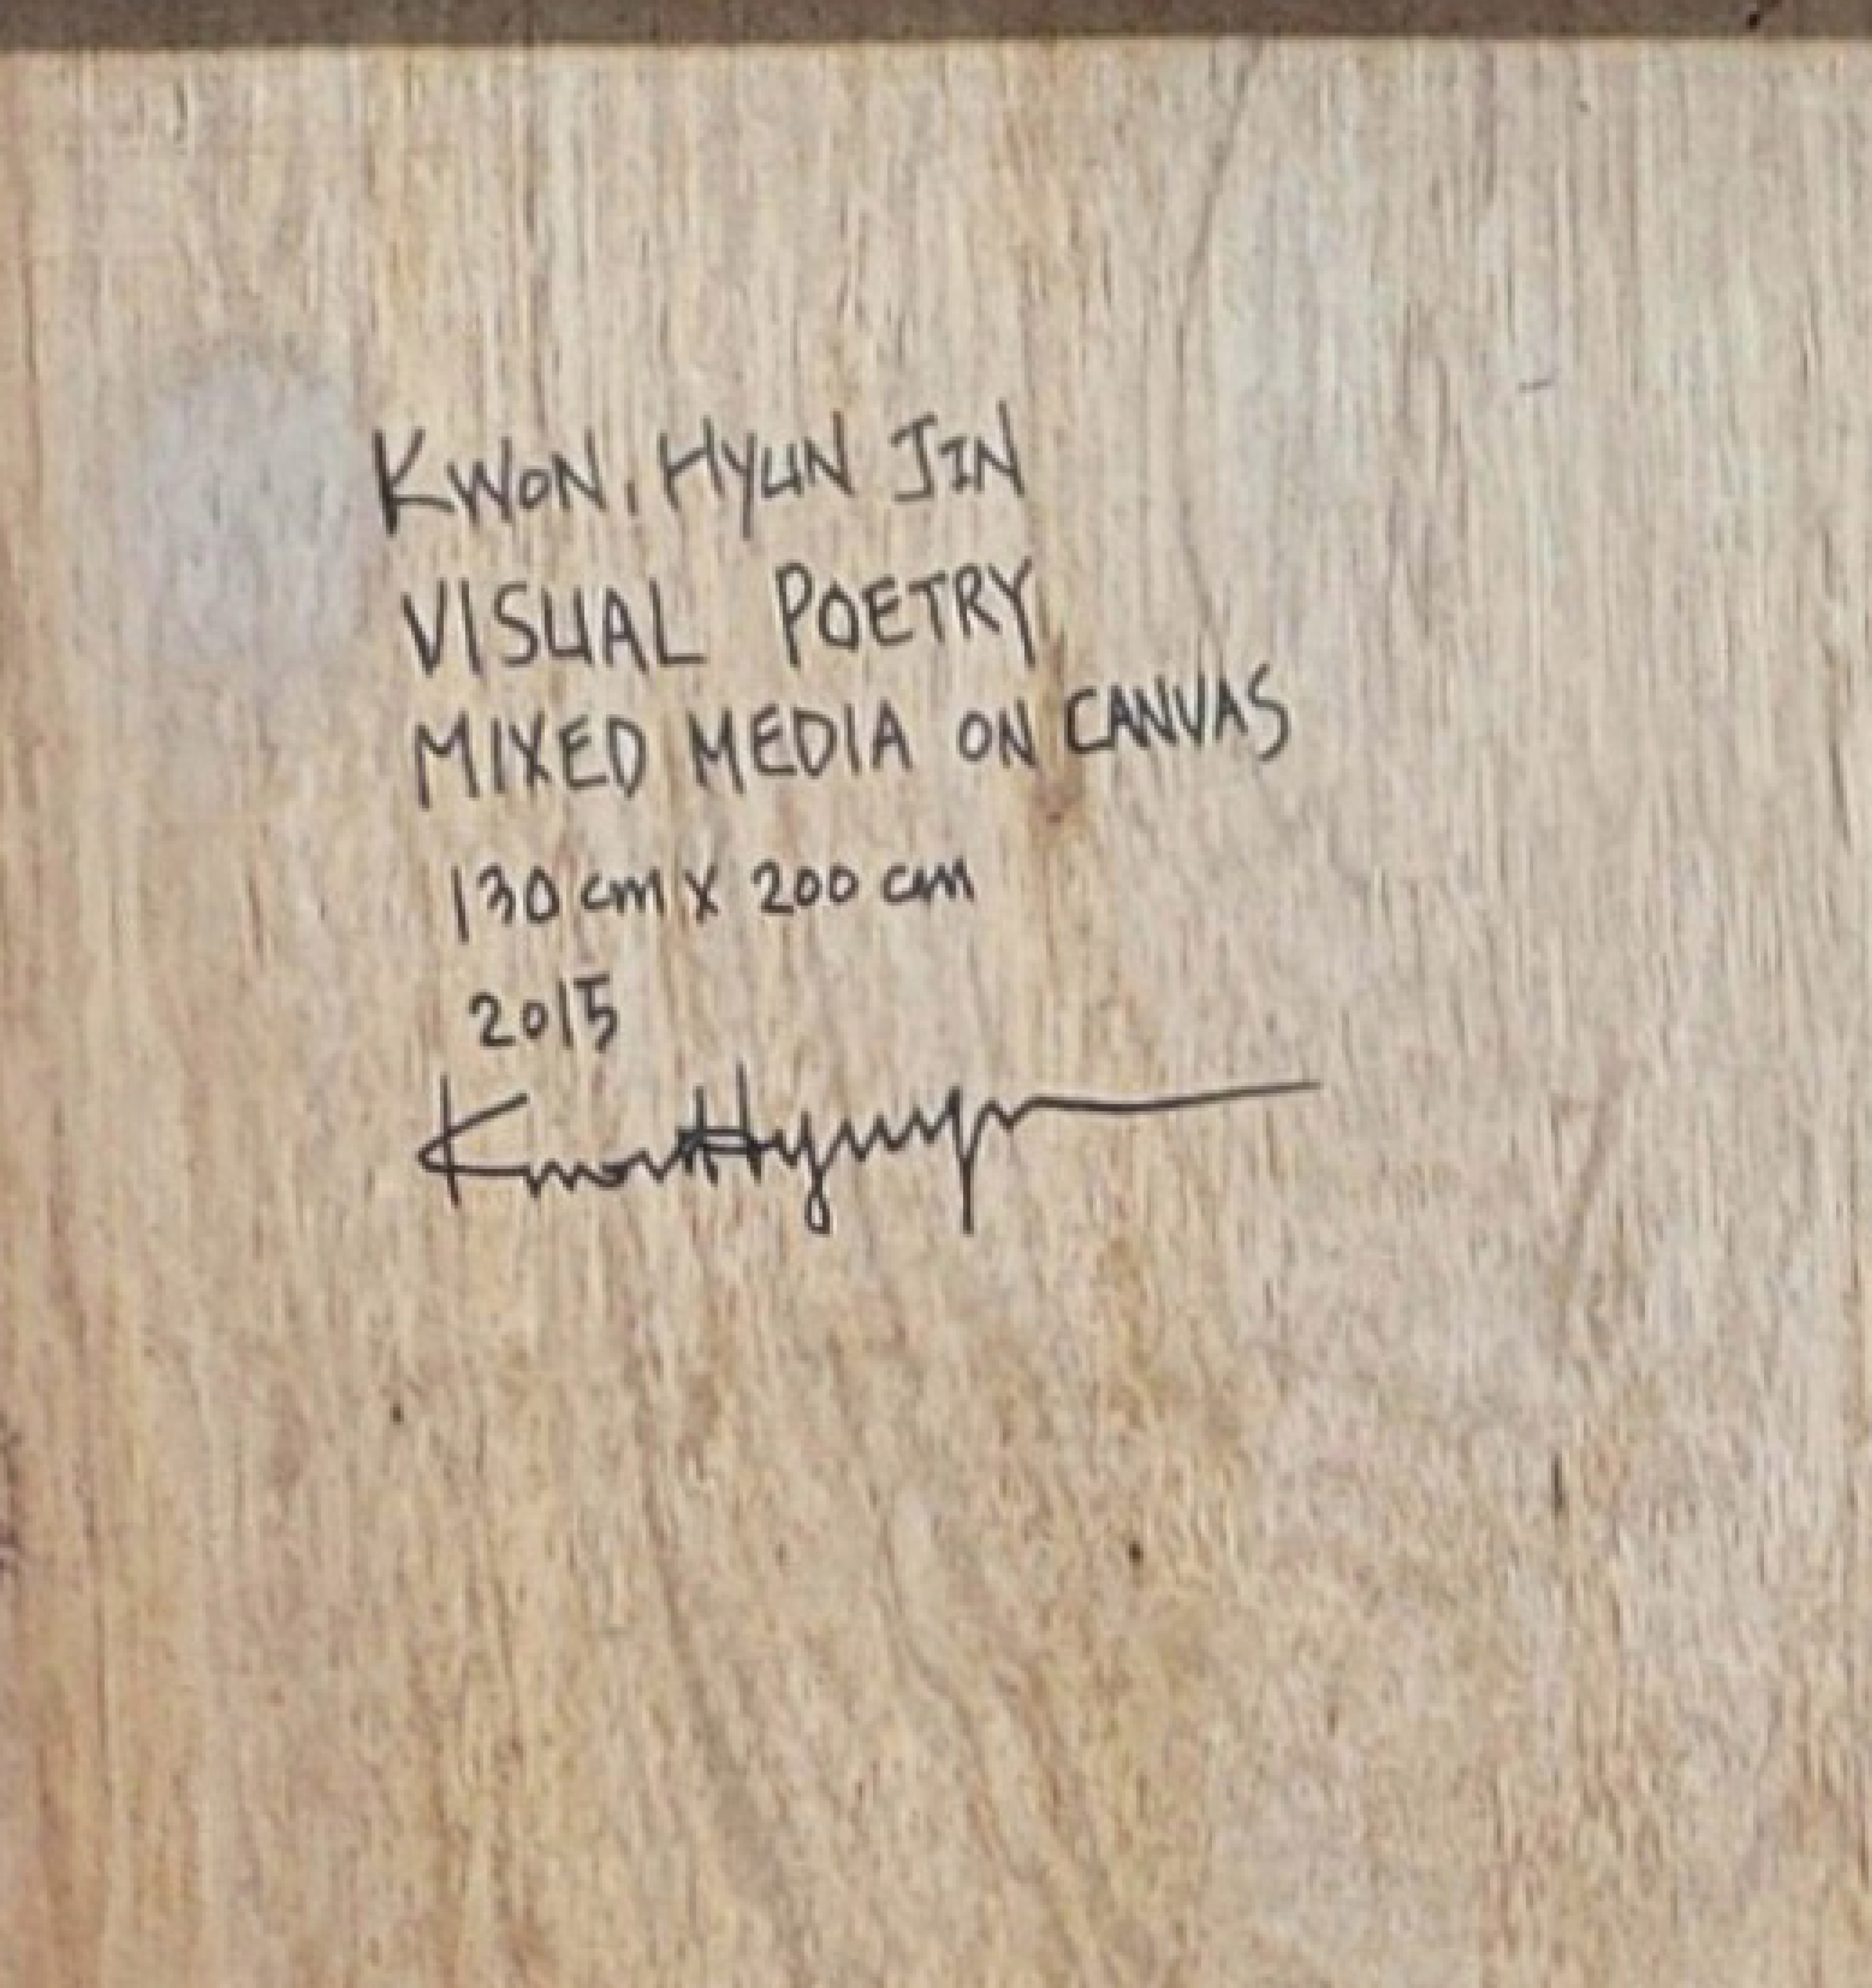 KWON, HYUN JIN
VISUAL POETRY
MIXED MEDIA ON CANVAS
130 cm X 200 cm
2015